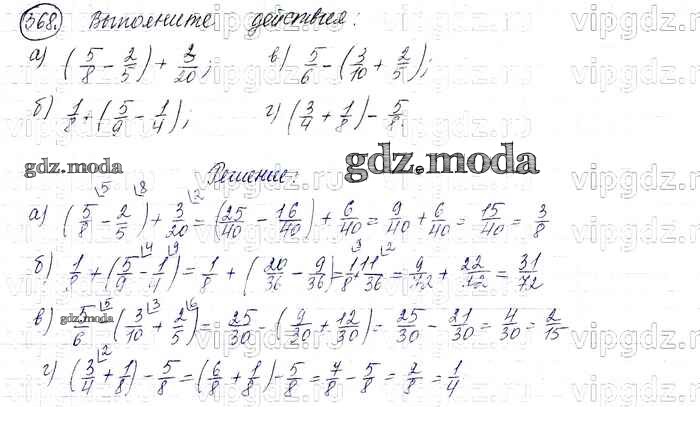 368. Выполните действия:
а) (5/8 - 2/5) + 3/20; в) 5/6 - (3/10 + 2/5);
б) 1/8 + (5/9 - 1/4); г) (3/4 + 1/8) - 5/8.
gdz.moda
gdz.moda
Решение:
а) (5/8 - 2/5) + 3/20 = (25/40 - 16/40) + 6/40 = 9/40 + 6/40 = 15/40 = 3/8
б) 1/8 + (5/9 - 1/4) = 1/8 + (20/36 - 9/36) = 1/8 + 11/36 = 9/72 + 22/72 = 31/72
в) 5/6 - (3/10 + 2/5) = 25/30 - (9/30 + 12/30) = 25/30 - 21/30 = 4/30 = 2/15
gdz.moda
г) (3/4 + 1/8) - 5/8 = (6/8 + 1/8) - 5/8 = 7/8 - 5/8 = 2/8 = 1/4
vipgdz.ru